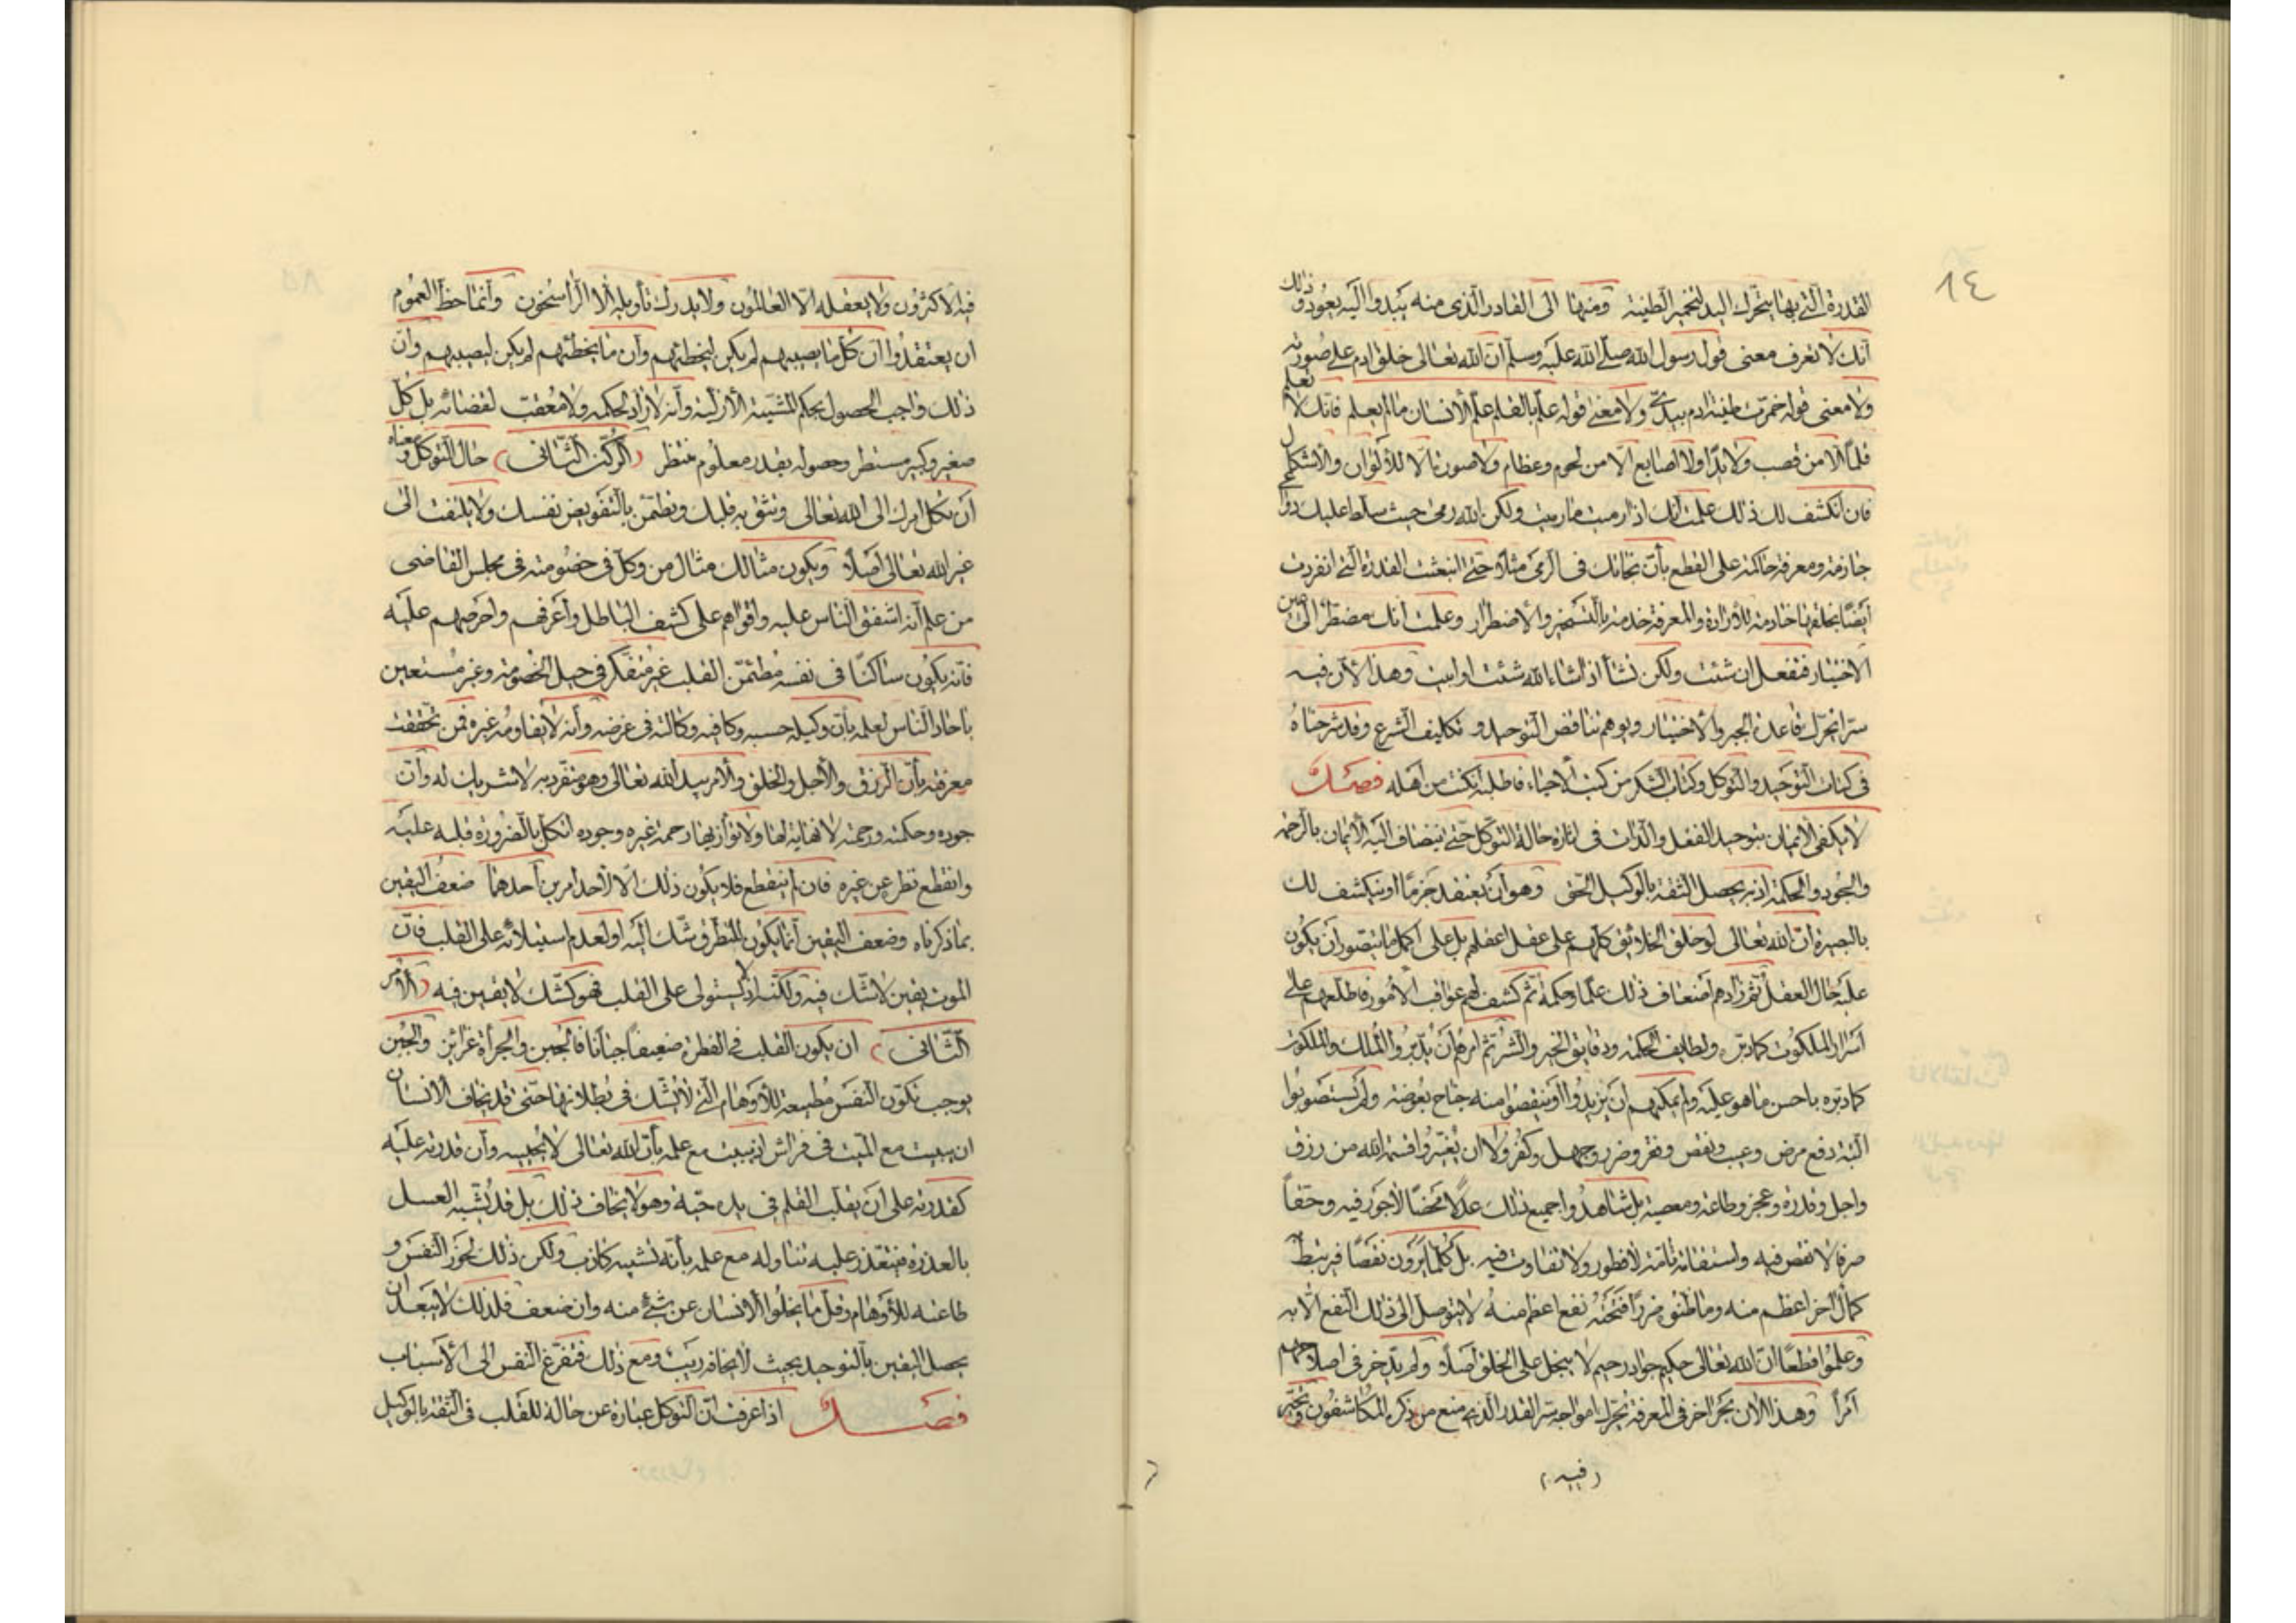 ٨٤
القدرة التى بها يتحرك اليد لتخمير الطينة ومنها الى القادر الذى منه يبدوا واليه يعود وذلك
انك لا تعرف معنى قول رسول الله صلى الله عليه وسلم ان الله تعالى خلق ادم على صورته
ولا معنى قوله خمرت طينة ادم بيدى ولا معنى قوله علم بالقلم علم الانسان ما لم يعلم فانك لا تعلم
قلما الا من قصب ولا يدا ولا اصابع الا من لحوم وعظام ولا صورتا الا للالوان والاشكال
فان انكشف لك ذلك علمت انك اذا رميت ما رميت ولكن الله رمى حيث سلط عليك دواعى
جازمة ومعرفة حاكمة على القطع بأن نجاتك فى الرمى مثلا حتى انبعثت القدرة التى انفردت
ايضا بخلقها خادمة للارادة والمعرفة خدمة بالتسخير والاضطرار وعلمت انك مضطر الى عين
الاختيار فتفعل ان شئت ولكن تشأ اذا شاء الله شئت او ابيت وهذا الآن فيه
سر انحرك قاعدة الجبر والاختيار ويوهم تناقض التوحيد و تكليف الشرع وقد شرحناه
فى كتاب التوحيد والتوكل وكتاب الشكر من كتب الاحياء فاطلبه ان كنت من اهله فصل
لا يكفى الايمان بتوحيد الفعل والذات فى اثارة حالة التوكل حتى ينضاف اليه الايمان بالرحمة
والجود والحكمة اذ به يحصل الثقة بالوكيل الحق وهو ان يعتقد جزما او ينكشف لك
بالبصيرة ان الله تعالى لو خلق الخلائق كلهم على عقل اعقلهم بل على اكمل ما يتصور ان يكون
عليه حال العقل ثم زادهم اضعاف ذلك علما وحكمة ثم كشف لهم عواقب الامور فاطلعهم على
اسرار الملكوت كما دبر ولطايف الحكمة ودقايق الخير والشر ثم امرهم ان يدبروا الملك والملكوت
كما دبره باحسن ما هو عليه ولم يمكنهم ان يزيدوا او ينقصوا منه جناح بعوضة ولم يستصوبوا
البتة دفع مرض وعيب ونقص وفقر وضر وجهل وكفر ولا ان يغيروا قسمة الله من رزق
واجل وقدرة وعجز وطاعة ومعصية بل شاهدوا جميع ذلك عدلا محضا لا جور فيه وحقا
صرفا لا نقص فيه واستقامة تامة لا فطور ولا تفاوت فيه بل كلما يرون نقصا فيرتبط
كمال اخر اعظم منه وما ظنوه ضررا فتحته نفع اعظم منه لا يتوصل الى ذلك النفع الا به
وعلموا قطعا ان الله تعالى حكيم جواد رحيم لا يبخل على الخلق اصلا ولم يدخر فى اصلاحهم
امرا وهذا الآن بحر اخر فى المعرفة يحرك امواجه سر القدر الذى منع من ذكره المكاشفون وتحير
(فيه)
فيه الاكثرون ولا يعقله الا العالمون ولا يدرك تأويله الا الراسخون وانما حظ العموم
ان يعتقدوا ان كل ما يصيبهم لم يكن ليخطئهم وان ما يخطئهم لم يكن ليصيبهم وان
ذلك واجب الحصول بحكم المشيئة الازلية وانه لا راد لحكمه ولا معقب لقضائه بل كل
صغير وكبير مستطر وحصوله بقدر معلوم منتظر (الركن الثانى) حال التوكل ومعناه
ان تكل امرك الى الله تعالى وتثق به قلبك وتطمئن بالتفويض نفسك ولا يلتفت الى
غير الله تعالى اصلا ويكون مثالك مثال من وكل فى خصومته فى مجلس القاضى
من علم انه اشفق الناس عليه واقواهم على كشف الباطل واعرفهم واحرصهم عليه
فانه يكون ساكنا فى نفسه مطمئن القلب غير متفكر فى حيل الخصومة وغير مستعين
باحاد الناس لعلمه بأن وكيله حسبه وكافيه وكالته فى غرضه وانه لا يقاومه غيره فمن تحققت
معرفته بأن الرزق والاجل والخلق والامر بيد الله تعالى وهو منفرد به لا شريك له وان
جوده وحكمته ورحمته لا نهاية لها ولا توازيها رحمة غيره وجوده اتكل بالضرورة قلبه عليه
وانقطع نظره عن غيره فان لم ينقطع فلا يكون ذلك الا لاحد امرين احدهما ضعف اليقين
بما ذكرناه وضعف اليقين انما يكون لتطرق شك اليه او لعدم استيلائه على القلب فان
الموت يقين لا شك فيه ولكنه اذ لا يستولى على القلب فهو كشك لا يقين فيه (الامر
الثانى) ان يكون القلب فى الفطرة ضعيفا جبانا فالجبن والجرأة غرائز والجبن
يوجب تكون النفس مطيعة للاوهام التى لا شك فى بطلانها حتى قد يخاف الانسان
ان يبيت مع الميت فى فراش او بيت مع علمه بأن الله تعالى لا يحييه وان قدرته عليه
كقدرته على ان يقلب القلم فى يده حية وهو لا يخاف ذلك بل قد يشبه العسل
بالعذرة فيتعذر عليه تناوله مع علمه بأنه تشبيه كاذب ولكن ذلك لخور النفس و
طاعته للاوهام وقل ما يخلوا الانسان عن شئ منه وان ضعف فلذلك لا يبعد ان
يحصل اليقين بالتوحيد بحيث لا يخافه ريب ومع ذلك فتفزع النفس الى الاسباب
فصل اذا عرفت ان التوكل عبارة عن حالة للقلب فى الثقة بالوكيل